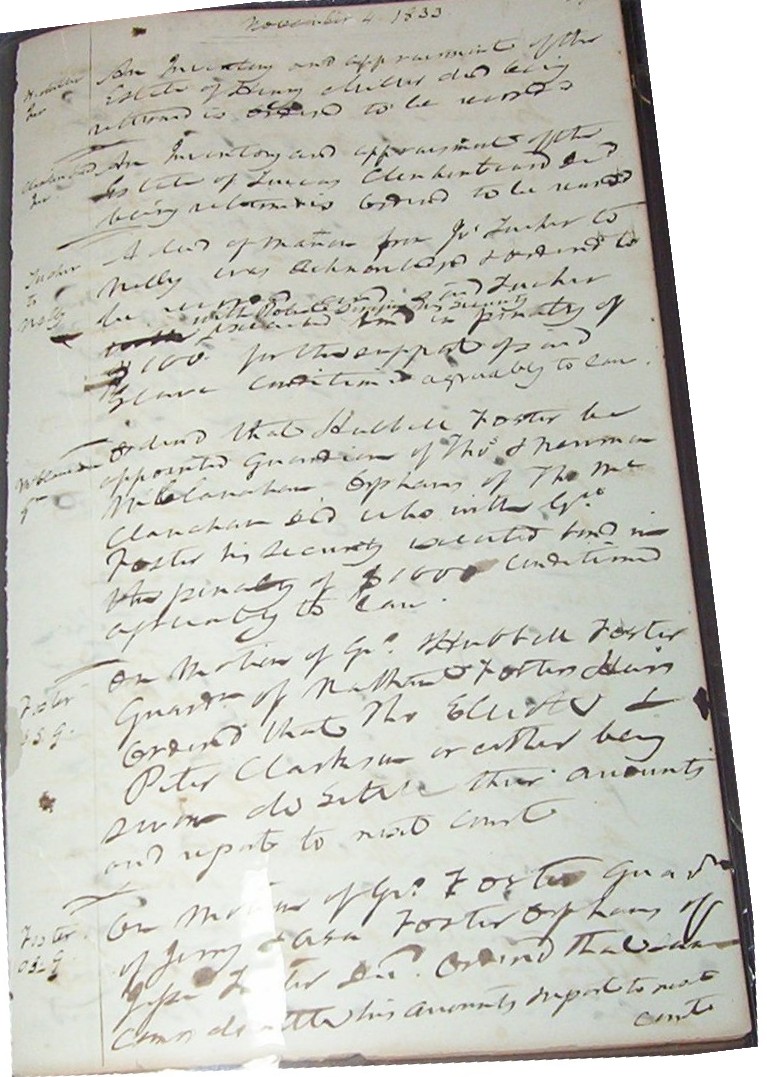 November 4 1833
An Inventory and appraisment of the
Estate of Henry Miller decd being
returned is ordered to be recorded
An Inventory and appraisment of the
Estate of Lucas Clenkenbeard decd
being returned is ordered to be record
A deed of from Jo Tucker to
Nelly was acknowledged & ordered to
be recorded and Tucker
with Robert his security
executed bond in penalty of
$1000 for the support of said
Slave conditioned agreeably to law.
Ordered that Hubbell Foster be
appointed Guardian of Thos & Newman
McClanahan Orphans of Tho Mc
Clanahan decd who with Geo
Foster his security executed bond in
the penalty of $1000 conditioned
agreeably to law.
On motion of Geo. & Hubbell Foster
Guardn of Nathan Fosters Heirs
Ordered that Tho Elliott &
Peter Clarkson or either being
sworn do settle their accounts
and report to next court
On motion of Geo. Foster Guardn
of Jerry & Asa Foster Orphans of
Foster decd. Ordered that same
comrs do settle his accounts & report to next
court
Tucker
to
Nelly
Foster
Foster